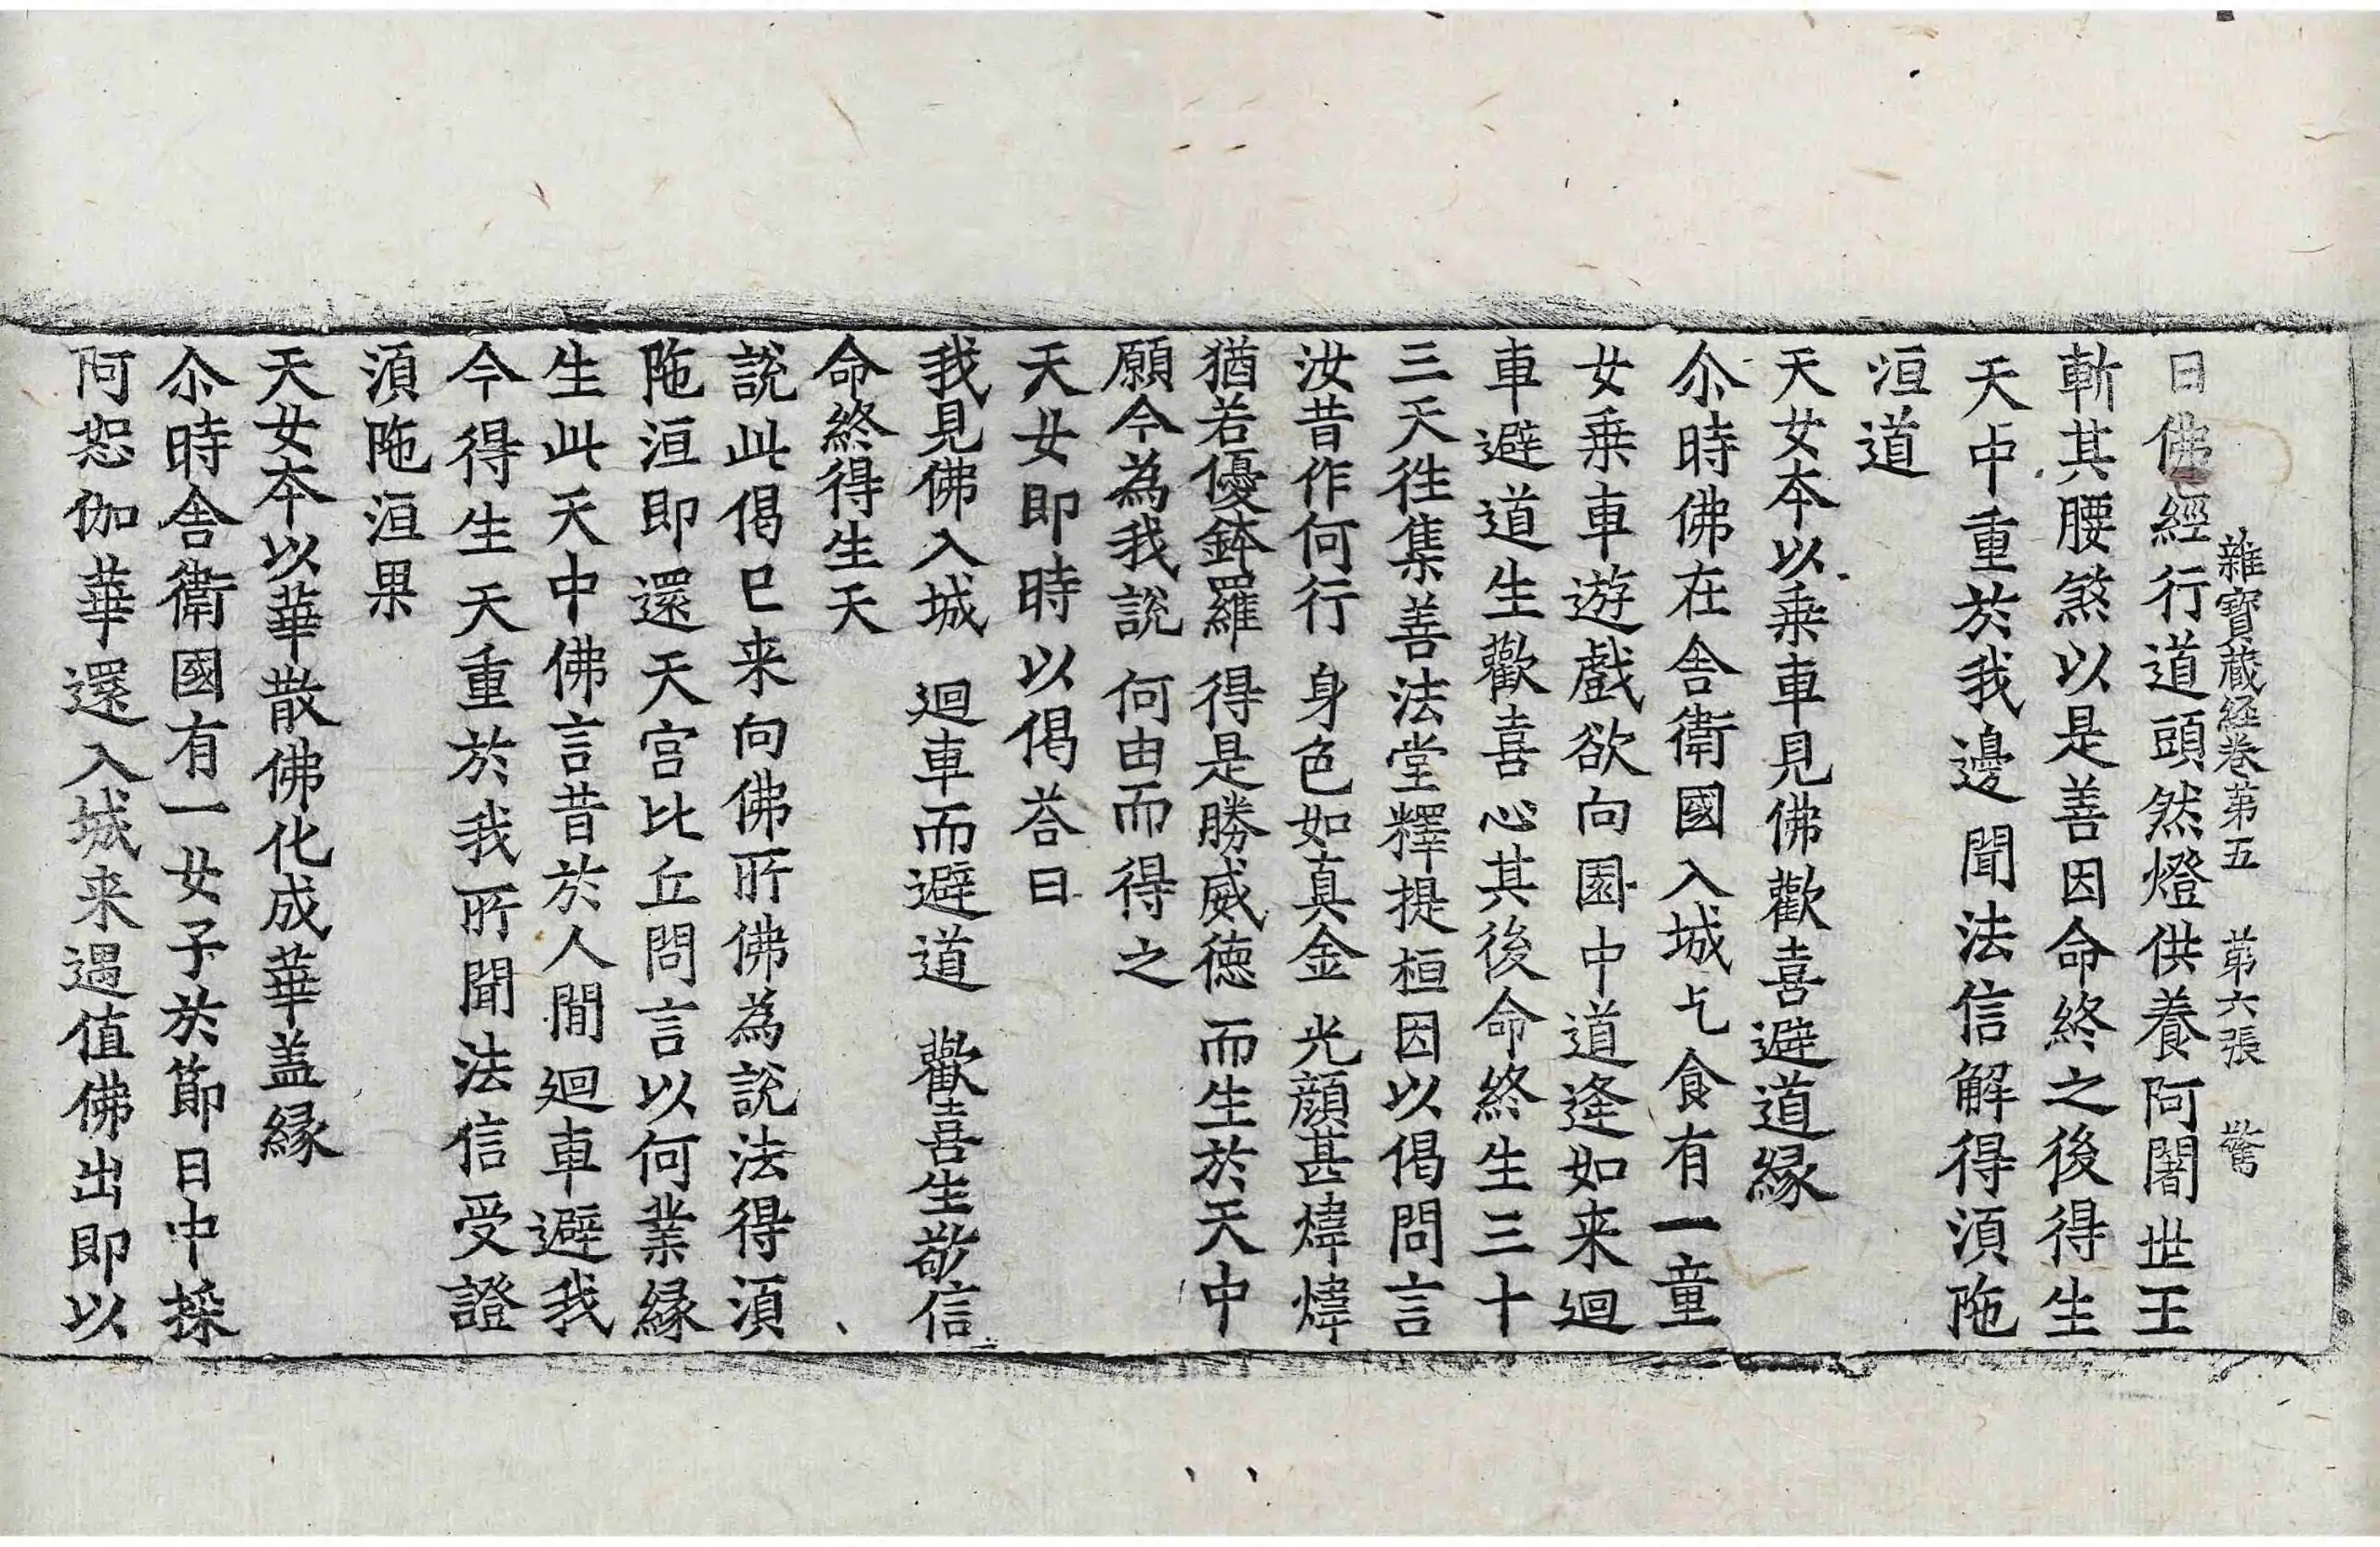 雜寶蔵経卷苐五　苐六張　驚
日佛經行道頭然燈供養阿闍世王
斬其腰煞以是善因命終之後得生
天中重於我邊聞法信解得湏陁
洹道
天女夲以乗車見佛歡喜避道縁
尒時佛在舎衛國入城乞食有一童
女乗車遊戲欲向園中道逢如来迴
車避道生歡喜心其後命終生三十
三天徃集善法堂釋提桓因以偈問言
汝昔作何行　身色如真金　光顔甚煒煒
猶若優鉢羅　得是勝威徳　而生於天中
願今為我說　何由而得之
天女即時以偈荅曰
我見佛入城　迴車而避道　歡喜生敬信
命終得生天
說此偈已来向佛所佛為說法得湏
陁洹即還天宫比丘問言以何業縁
生此天中佛言昔於人間迴車避我
今得生天重於我所聞法信受證
湏陁洹果
天女夲以華散佛化成華盖縁
尒時舎衛國有一女子於節日中採
阿恕伽華還入城来遇值佛出即以